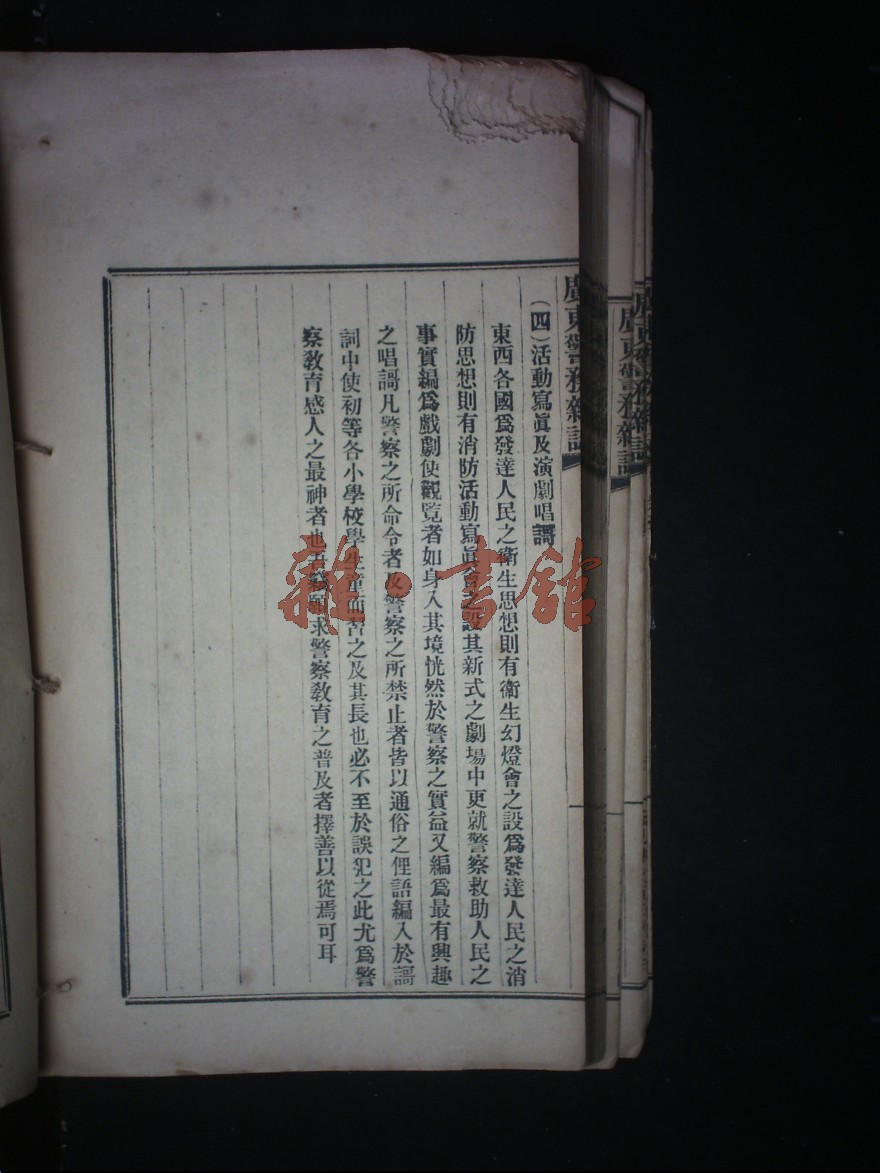 廣東警務雜誌
(四)活動寫眞及演劇唱謌
東西各國爲發達人民之衛生思想則有衛生幻燈會之設爲發達人民之消
防思想則有消防活動寫眞會之設其新式之劇場中更就警察救助人民之
事實編爲戲劇使觀覽者如身入其境恍然於警察之實益又編爲最有興趣
之唱謌凡警察之所命令者及警察之所禁止者皆以通俗之俚語編入於謌
詞中使初等各小學校學生童而習之及其長也必不至於誤犯之此尤爲警
察敎育感人之最神者也吾願求警察敎育之普及者擇善以從焉可耳
廣東警務雜誌
廣東警務雜誌
雜·書館